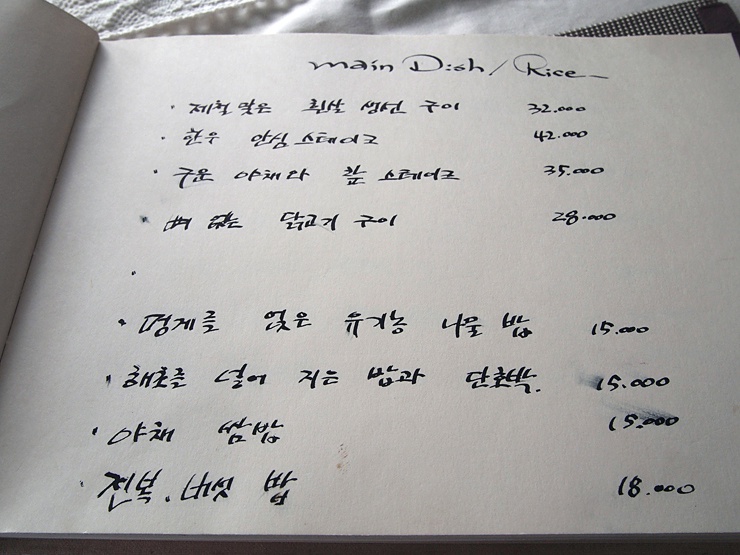 Main Dish / Rice
· 제철 맞은 흰살 생선 구이 32.000
· 한우 안심 스테이크 42.000
· 구운 야채와 스테이크 35.000
· 뼈 없는 닭고기 구이 28.000
·
· 멍게를 얹은 유기농 나물 밥 15.000
· 해초를 넣어 지은 밥과 단호박. 15.000
· 야채 쌈밥 15.000
· 전복. 버섯 밥 18.000